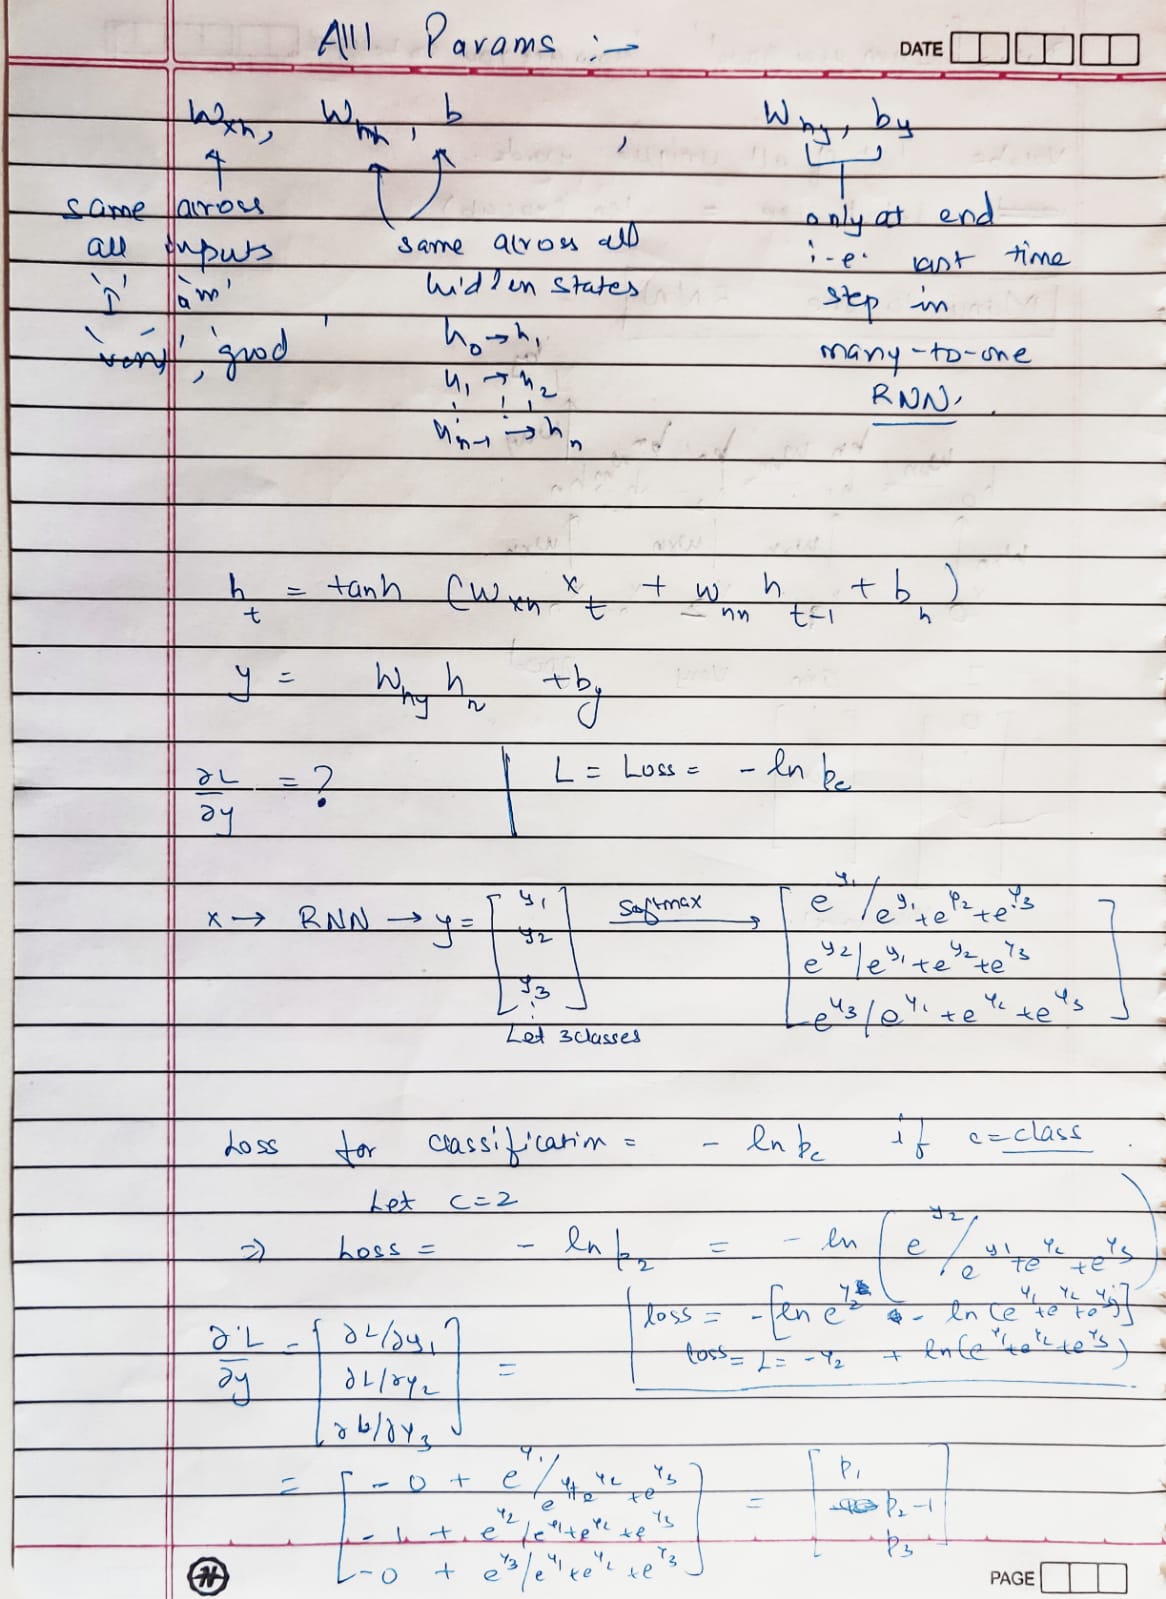 All Params :-
DATE
W_xh, W_hh, b , W_hy, b_y
same across all inputs
'I' 'am'
'very', 'good'
same across all hidden states
h_0 → h_1
h_1 → h_2
h_n-1 → h_n
only at end
i.e. last time
step in
many-to-one
RNN.
h_t = tanh (W_xh x_t + W_hh h_t-1 + b_h)
y = W_hy h_n + b_y
∂L/∂y = ? | L = Loss = - ln p_c
x → RNN → y = [y_1 y_2 y_3] softmax → [e^y_1/e^y_1+e^y_2+e^y_3
e^y_2/e^y_1+e^y_2+e^y_3
e^y_3/e^y_1+e^y_2+e^y_3]
Let 3 classes
Loss for classification = - ln p_c if c = class
Let c = 2
⇒ Loss = - ln p_2 = - ln (e^y_2/e^y_1+e^y_2+e^y_3)
loss = -[ln e^y_2 - ln(e^y_1+e^y_2+e^y_3)]
loss = L = -y_2 + ln(e^y_1+e^y_2+e^y_3)
∂L/∂y = [∂L/∂y_1
∂L/∂y_2
∂L/∂y_3] =
= [-0 + e^y_1/e^y_1+e^y_2+e^y_3
-1 + e^y_2/e^y_1+e^y_2+e^y_3
-0 + e^y_3/e^y_1+e^y_2+e^y_3] = [p_1
p_2-1
p_3]
N
PAGE